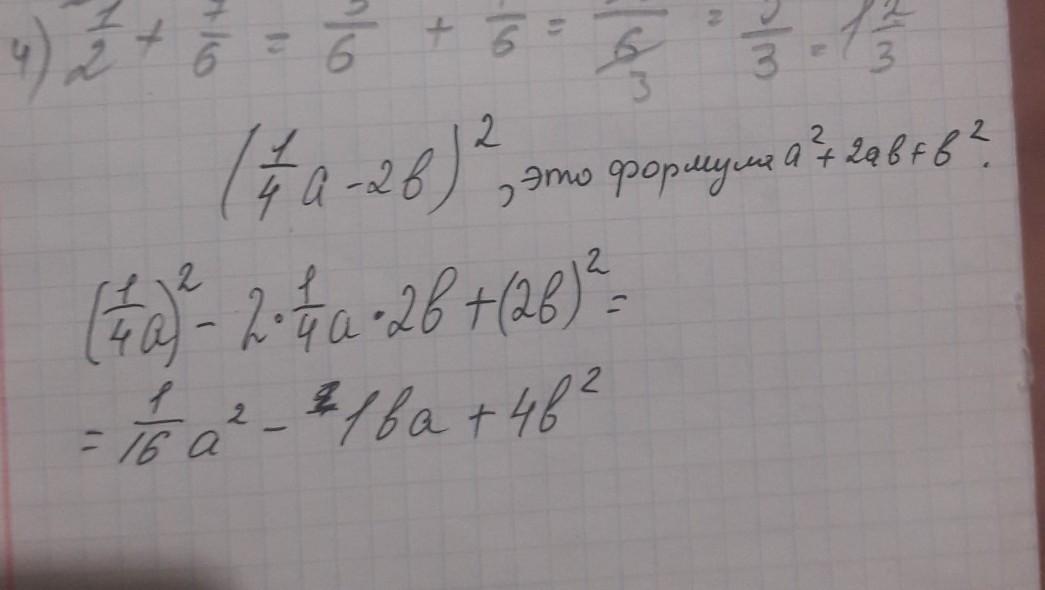 4) 1/2 + 7/6 = 3/6 + 7/6 = 10/6 3 = 5/3 = 1 2/3
(1/4 a - 2b)², это формула a² + 2ab + b².
(1/4 a)² - 2 · 1/4 a · 2b + (2b)² =
= 1/16 a² - 1ba + 4b²